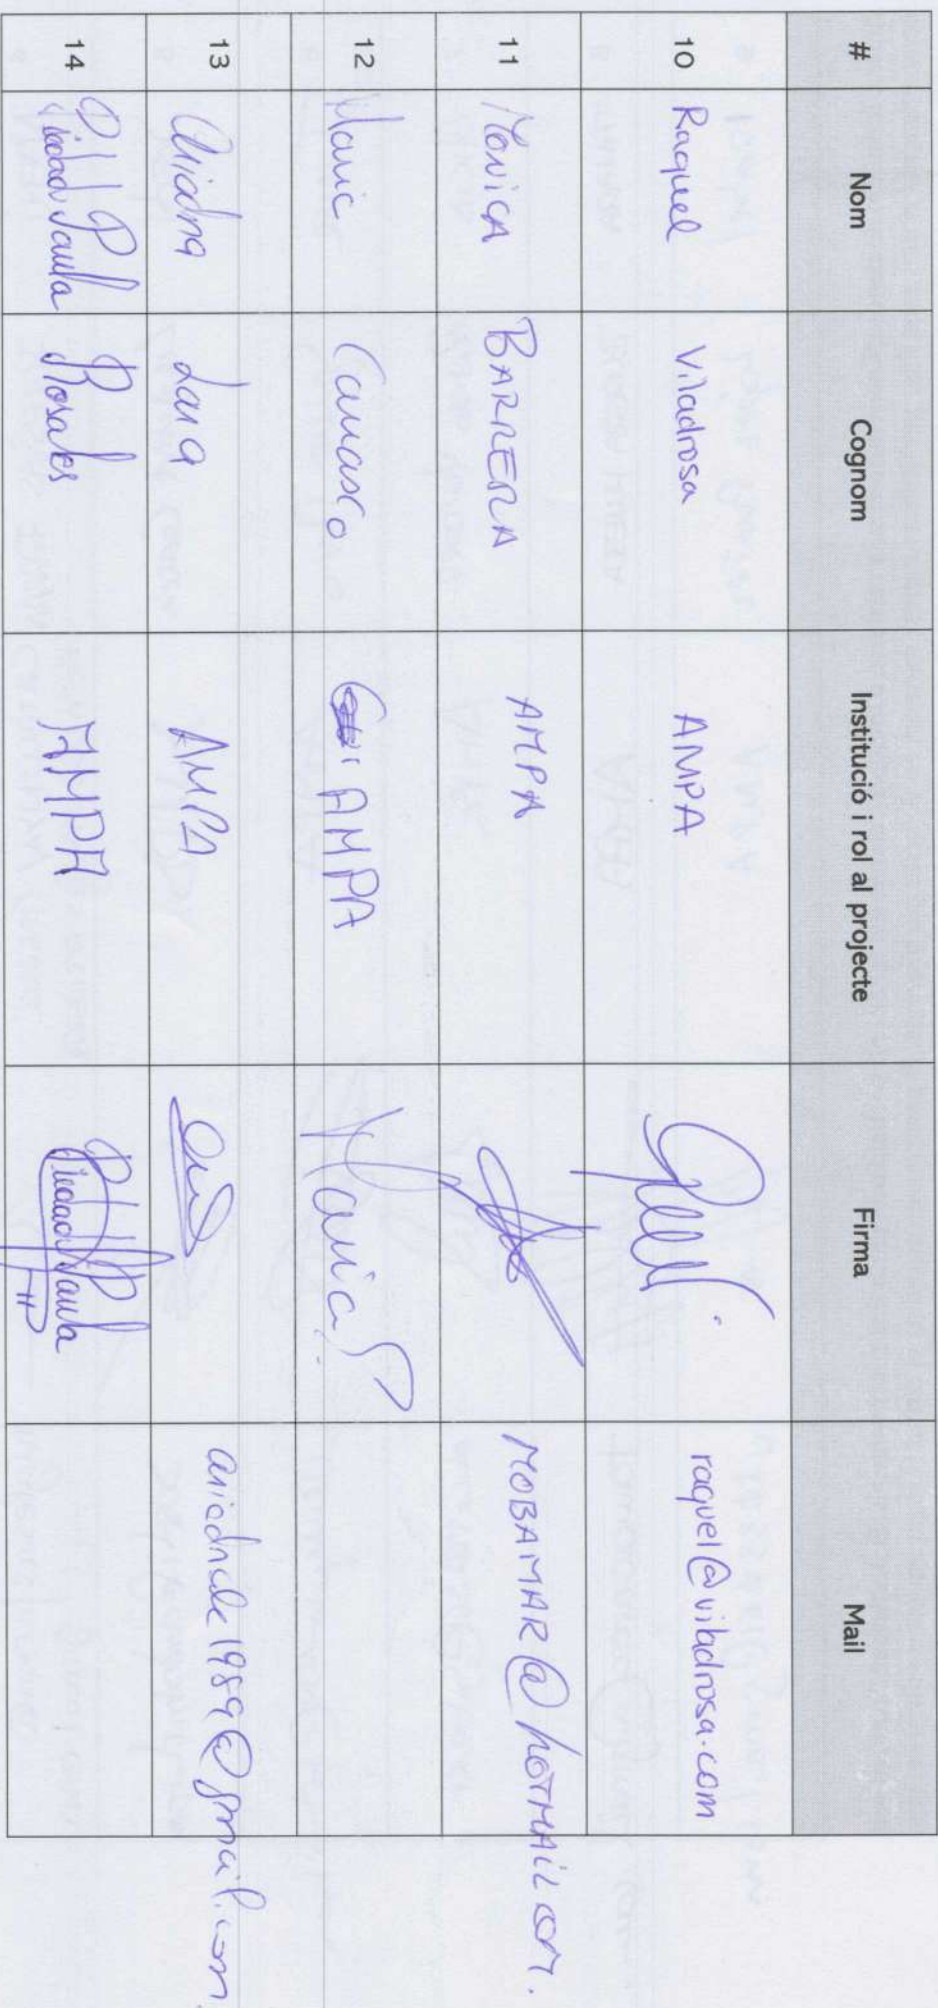 # Nom Cognom Institució i rol al projecte Firma Mail
10 Raquel Viladrosa AMPA raquel@viladrosa.com
11 Mónica BARRERA AMPA MOBAMAR@hotmail.com.
12 Carrasco AMPA
13 Ariadna Lara AMPA
14 Piedad Paula Rosales AMPA Piedad Paula